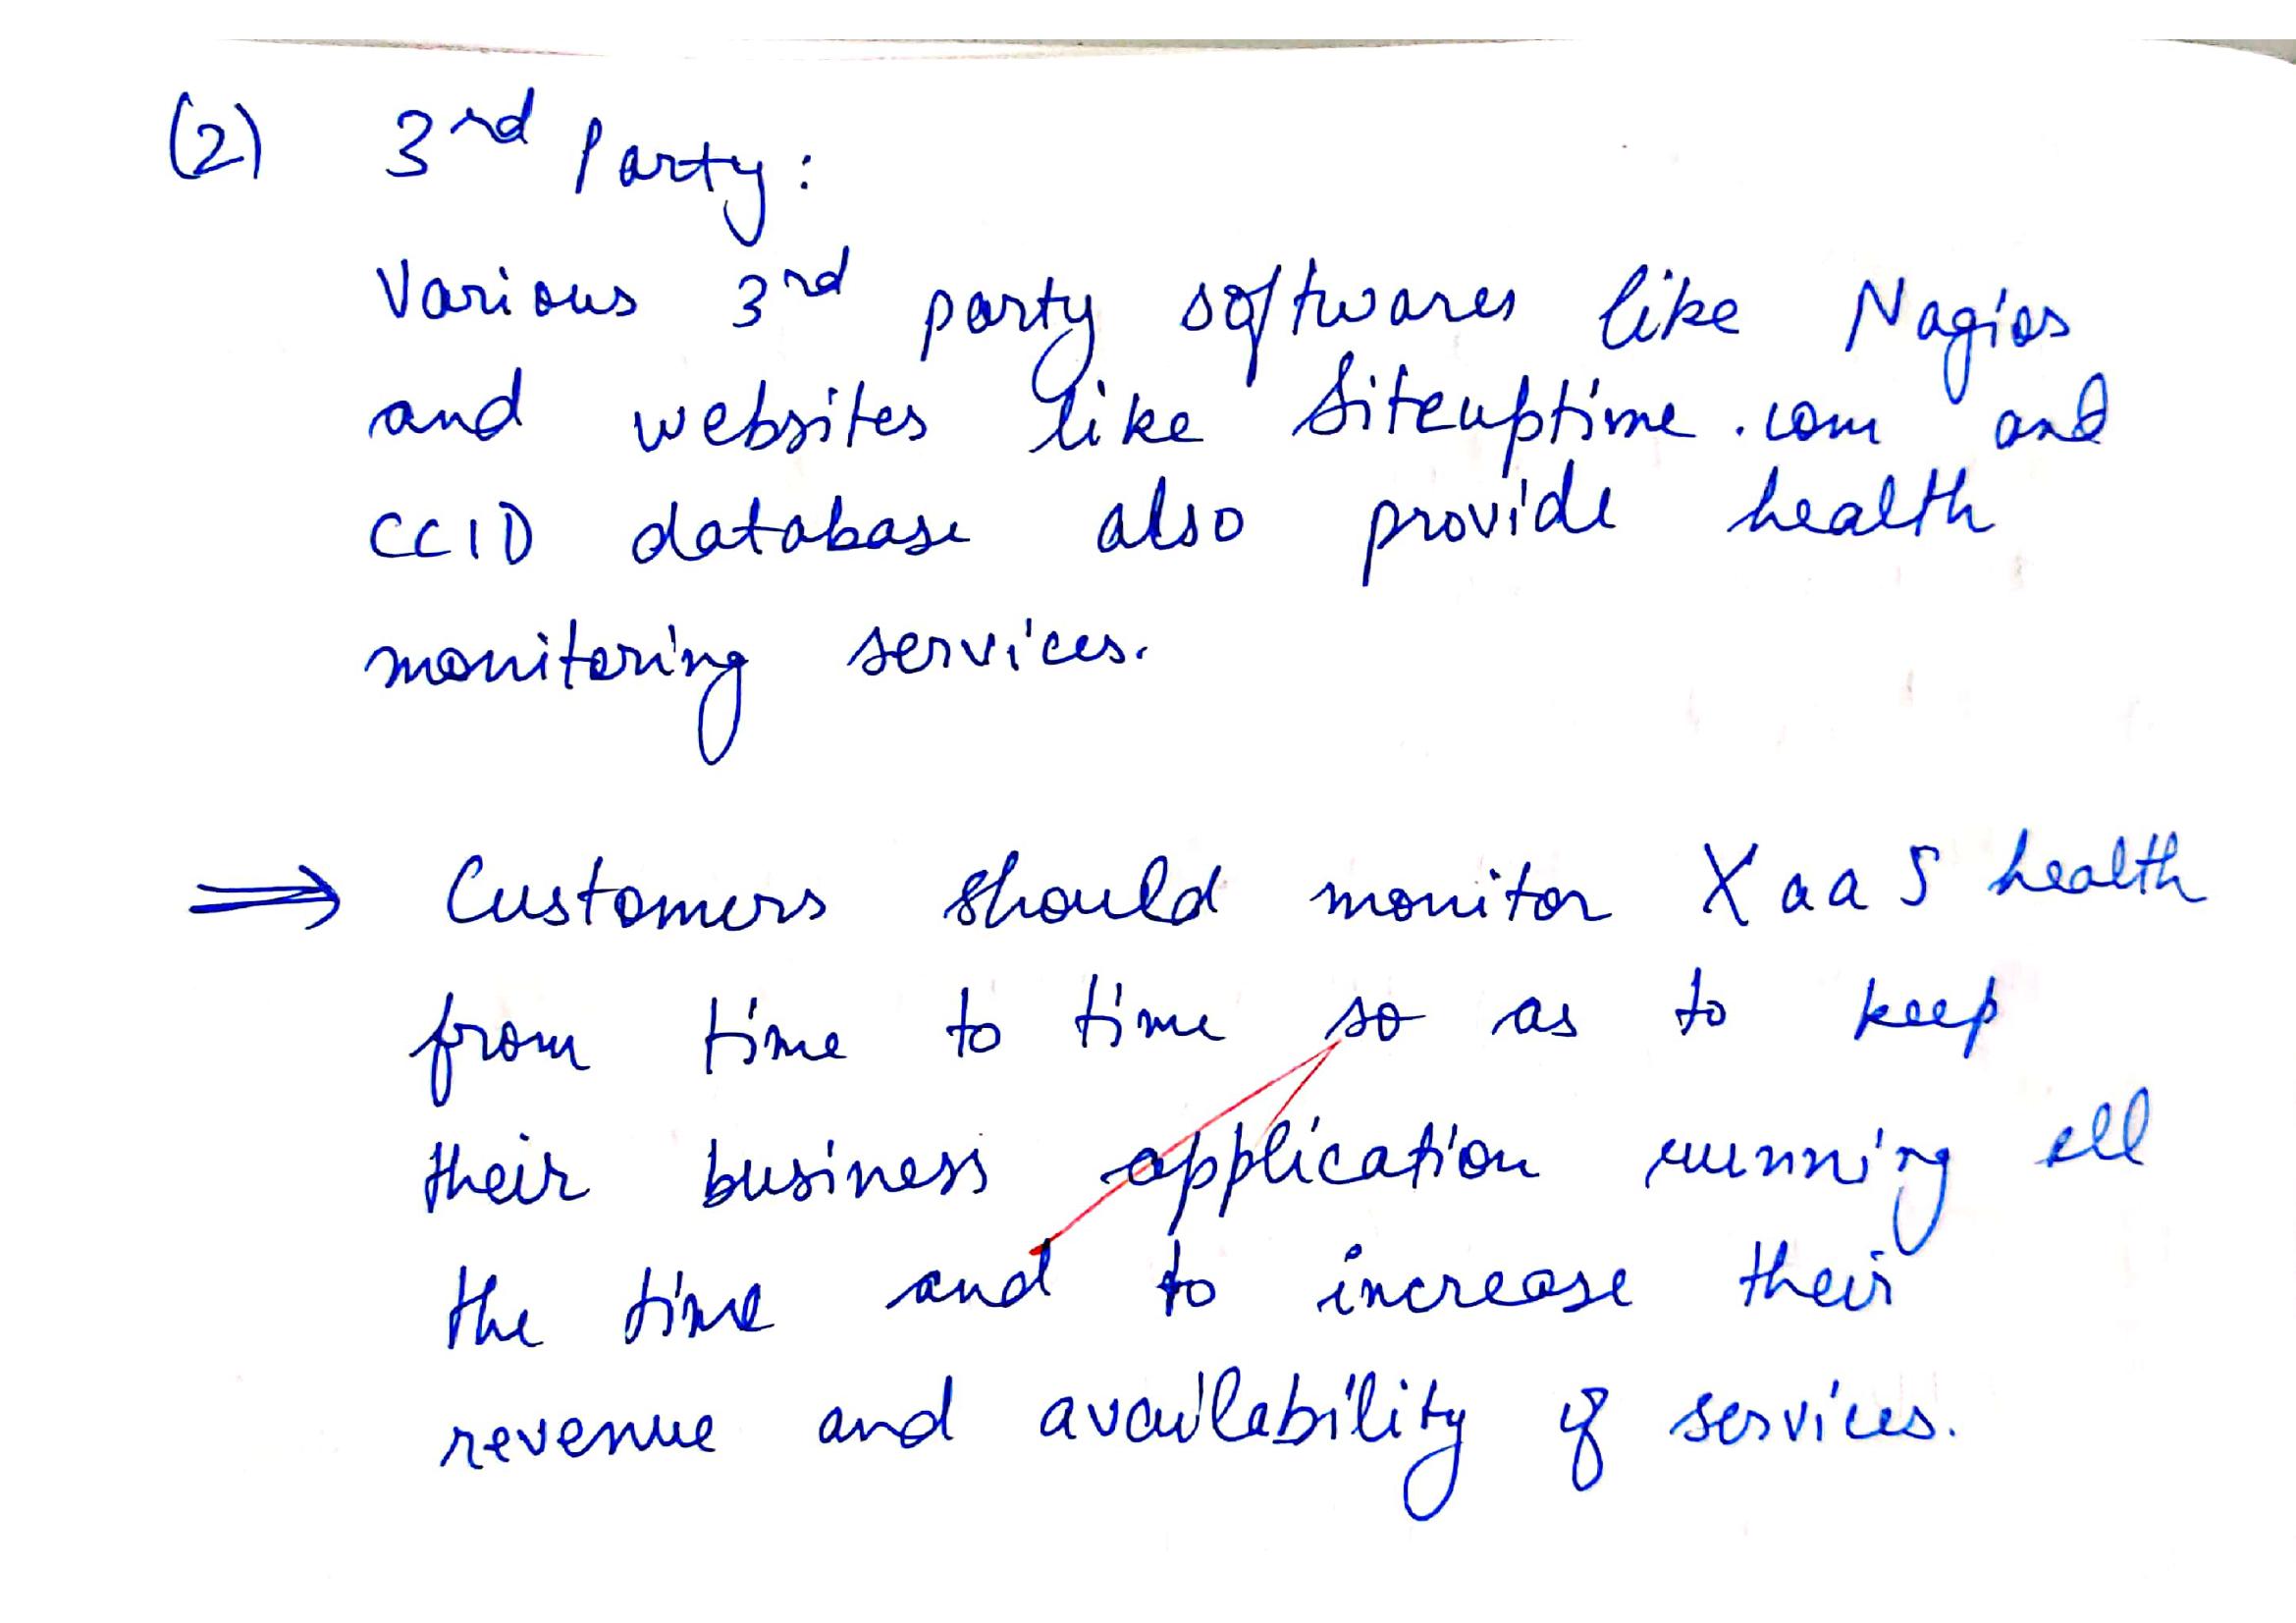 (2) 3rd Party:
Various 3rd party softwares like Nagios
and websites like Siteuptime.com and
CCID database also provide health
monitoring services.
⇒ Customers should monitor XaaS health
from time to time so as to keep
their business application running all
the time and to increase their
revenue and availability of services.